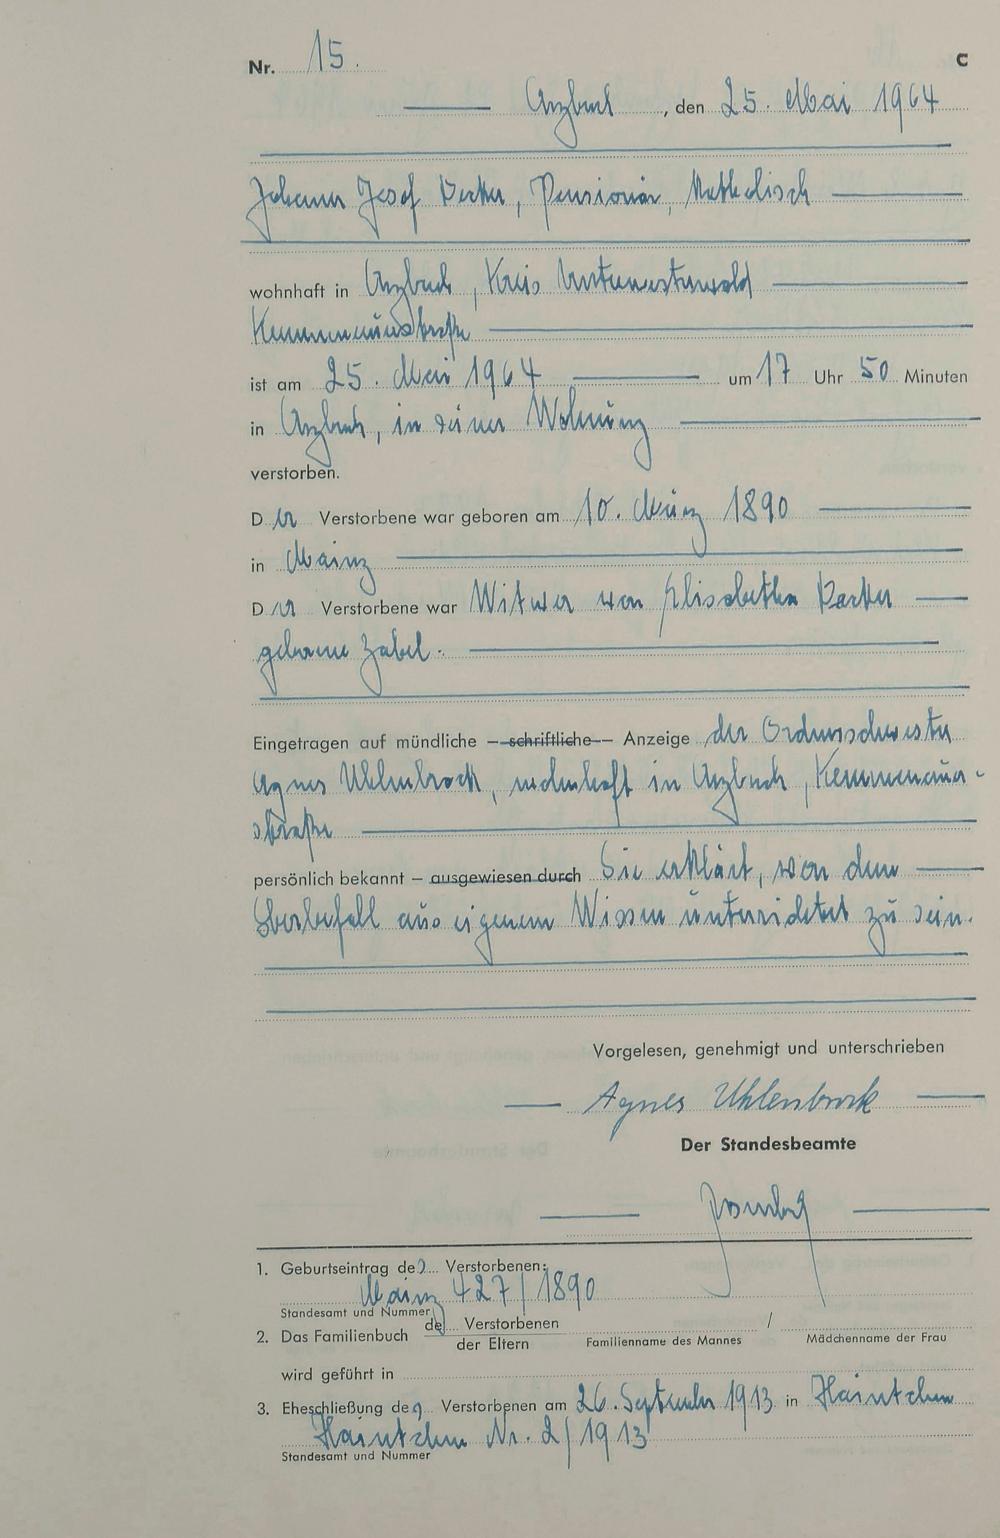 Nr. 15. C
Arzbach, den 25. Mai 1964
Johann Josef Decker, Pensionär, katholisch
wohnhaft in Arzbach, Kreis Unterwesterwald
Kemmenauerstraße
ist am 25. Mai 1964 um 17 Uhr 50 Minuten
in Arzbach, in seiner Wohnung
verstorben.
Der Verstorbene war geboren am 10. März 1890
in Mainz
Der Verstorbene war Witwer von Elisabetha Decker
geborene Zabel.
Eingetragen auf mündliche – schriftliche – Anzeige der Ordensschwester
Agnes Uhlenbrock, wohnhaft in Arzbach, Kemmenauer-
straße
persönlich bekannt – ausgewiesen durch Sie erklärt, von dem
Sterbefall aus eigenem Wissen unterrichtet zu sein.
Vorgelesen, genehmigt und unterschrieben
Agnes Uhlenbrock
Der Standesbeamte
1. Geburtseintrag des Verstorbenen:
Mainz 427/1890
Standesamt und Nummer
2. Das Familienbuch des Verstorbenen / 
der Eltern Familienname des Mannes Mädchenname der Frau
wird geführt in
3. Eheschließung des Verstorbenen am 26. September 1913 in Haintchen
Haintchen Nr. 2/1913
Standesamt und Nummer